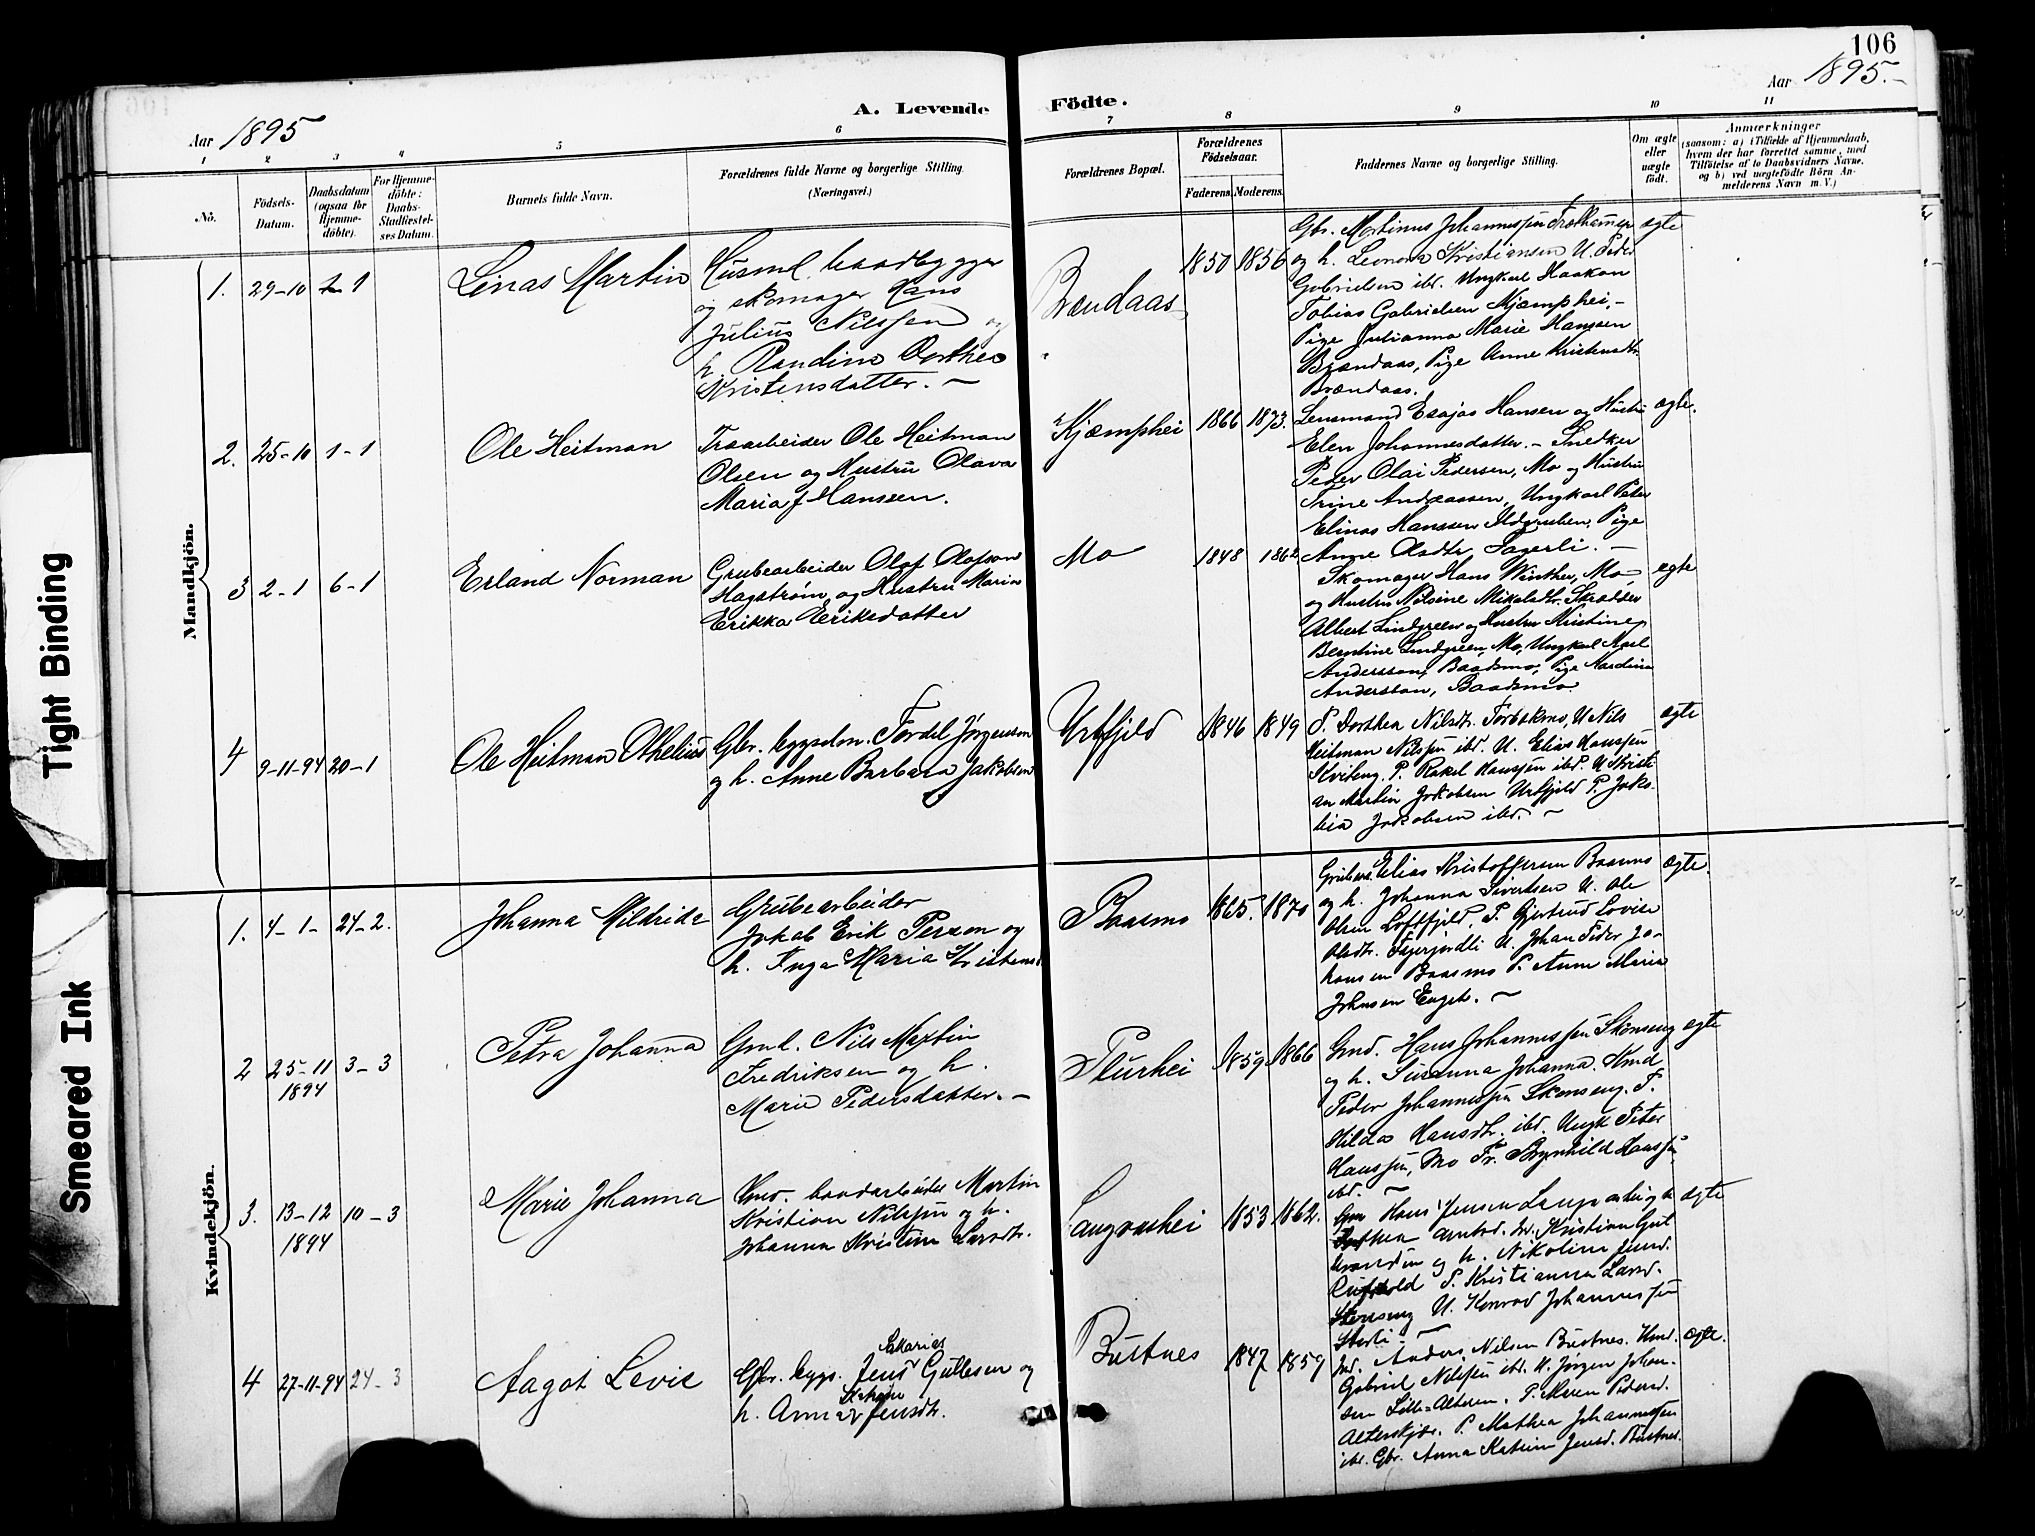 106
Aar 1895
A. Levende Födte.
Aar 1895.-
1 2 3 4 5 6 7 8 9 10 11
Nô.
Födsels-Datum.
Daabsdatum (ogsaa for Hjemme-döbte).
For Hjemme-döbte: Daabs-Stadfæstel-ses Datum.
Barnets fulde Navn.
Forældrenes fulde Navne og borgerlige Stilling.
(Næringsvei.)
Forældrenes Bopæl.
Forældrenes Födselsaar.
Faderens. Moderens.
Faddernes Navne og borgerlige Stilling.
Om ægte eller uægte födt.
Anmærkninger
(saasom: a) i Tilfælde af Hjemmedaab,
hvem der har forrettet samme, med
Tilföielse af to Daabsvidners Navne,
og b) ved uægtefödte Börn An-
melderens Navn m. V.)
Mandkjön.
1. 29-10 1 Linas Martin
Husmd. baadbygger
og skomager Hans
Julius Nilssen og
h. Randine Dorthea
Kristensdatter. -
Brændaas
1850 1856
Gbr. Martinus Johannessen
og h. Leonora Kristiansen U. Peder
Gabrielsen ibd. Ungkarl Haakon
Tobias Gabrielsen Kjæmphei, -
Pige Julianna Marie Hansen
Brændaas, Pige Anne Kristensdtr
Brændaas.
ægte
2. 25-10 1-1 Ole Heitman
Træarbeider Ole Heitman
Olsen og Hustru Olava
Maria f Hanssen.
Kjæmphei 1866 1873.
Lensmand Esajas Hansen og Hustru
Elen Johannesdatter. - Snedker
Peder Olai Pedersen, Mo og Hustru
Trine Andreassen, Ungkarl Peter
Elinas Hanssen Ildgruben, Pige
Anne Olsdtr Fagerli. -
ægte.
3 2-1 6-1 Erland Norman
Grubearbeider Olof Olofson
Hagström og Hustru Maria
Erikka Eriksdatter
Mo 1848 1862
Skomager Hans Winther, Mo,
og Hustru Nilsine Mikalsdtr. Skrædder
Albert Lindgreen og Hustru Kristine
Berntine Lindgreen, Mo, Ungkarl Karl
Andersson, Baasmo, Pige
Andersson, Baasmo.
ægte
4 9-11-94 20-1 Ole Heitman Othelius
Gbr. bygselm. Tordel Jörgensen
og h. Anne Barbara Jakobsen
Urtfjeld 1846 1849
P. Dorthea Nilsdtr. U Nils
Heitman Nilssen ibd. U. Elias Hanssen
P. Rakel Hanssen ibd. U Kristi
an Martin Jakobsen Urtfjeld P. Jako-
bia Jakobsen ibd. -
ægte
Kvindekjön.
1. 4-1- 24-2. Johanna Mildride
Grubearbeider
Jakob Erik Person og
h. Inga Maria Kristens
Baasmo 1865. 1870
Grubearb. Elias Kristoffersen Baasmo
og h. Johanna Sivertsen U. Ole
Olsen Loftfjeld, P. Gjertrud Lovise
Olsdtr. U. Johan Peder Jo-
hansen Baasmo P. Anne Maria
Johnsen Enget. -
ægte.
2 25-11 1894 3-3 Petra Johanna
Gmd. Nils Martin
Fredriksen og h.
Marie Pedersdatter. -
Plurhei 1859 1866
Gmd. Hans Johannessen Skonseng
og h. Susanna Johanna. Kmd
Peder Johannessen Skonseng. P.
Hilda Hansdtr. ibd. Ungk Peter
Hanssen, Mo Fr. Brynhild Hanssen
ibd. -
ægte
3. 13-12 1894 10-3 Marie Johanna
Hmd. baadarbeider Martin
Kristian Nilssen og h.
Johanna Kristine Larsdtr.
Langvashei 1853 1862.
Gm Hans Jensen og h
Kristian
og h. Nikoline
P. Kristianna Larsd.
Skonseng U. Konrad Johannessen
ægte
4 27-11-94 24-3 Aagot Levie
Gbr. bygs. Jens Sakarias Gullesen og
h. Anna Jensdtr.
Bustnes 1847 1859
Anders Nilsen Bustnes. Kmd.
Gabriel Nilssen ibd. U. Jörgen Johan-
sen Lille-Alteren. P. Maren Pedersd.
P. Mathea Johannessen
ibd. Gbr. Anna Katrine Jensd. Bustnes.
ægte.
Tight Binding
Smeared Ink